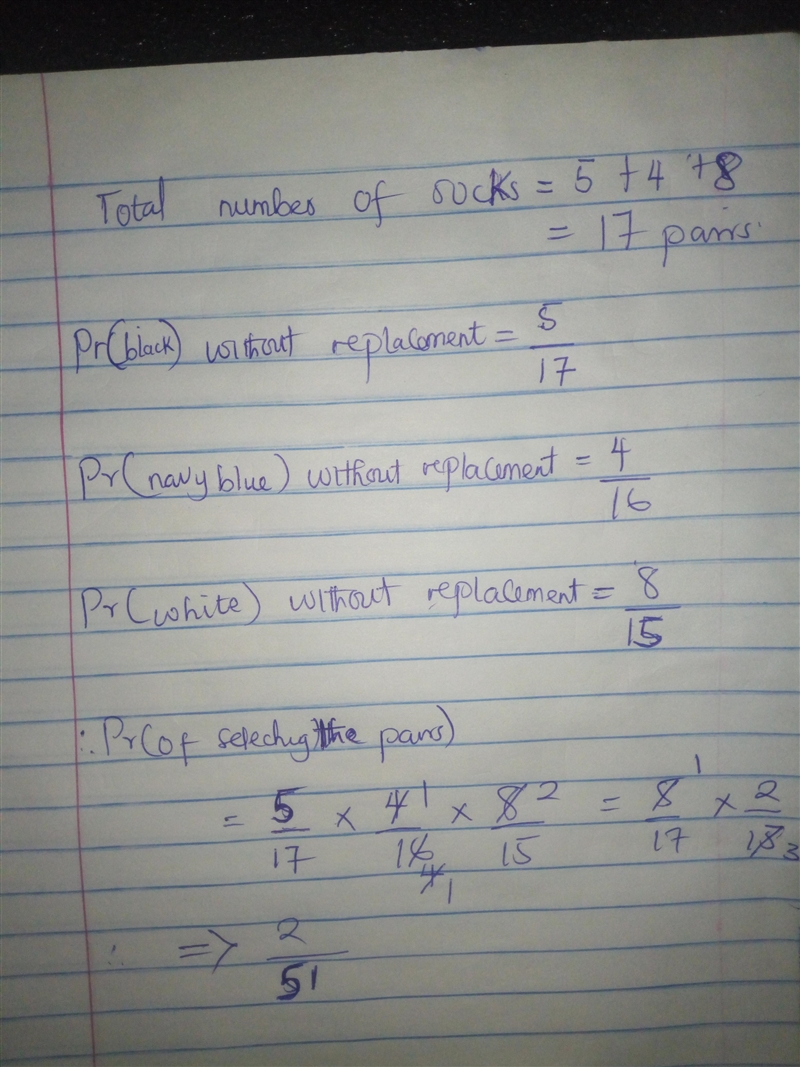 Total number of socks = 5 + 4 + 8
= 17 pairs.
Pr(black) without replacement = 5/17
Pr(navy blue) without replacement = 4/16
Pr(white) without replacement = 8/15
∴ Pr(of selecting the pairs)
= 5/17 × 4 1/16 4 1 × 8 2/15 = 5 1/17 × 2/15 3
∴ => 2/51